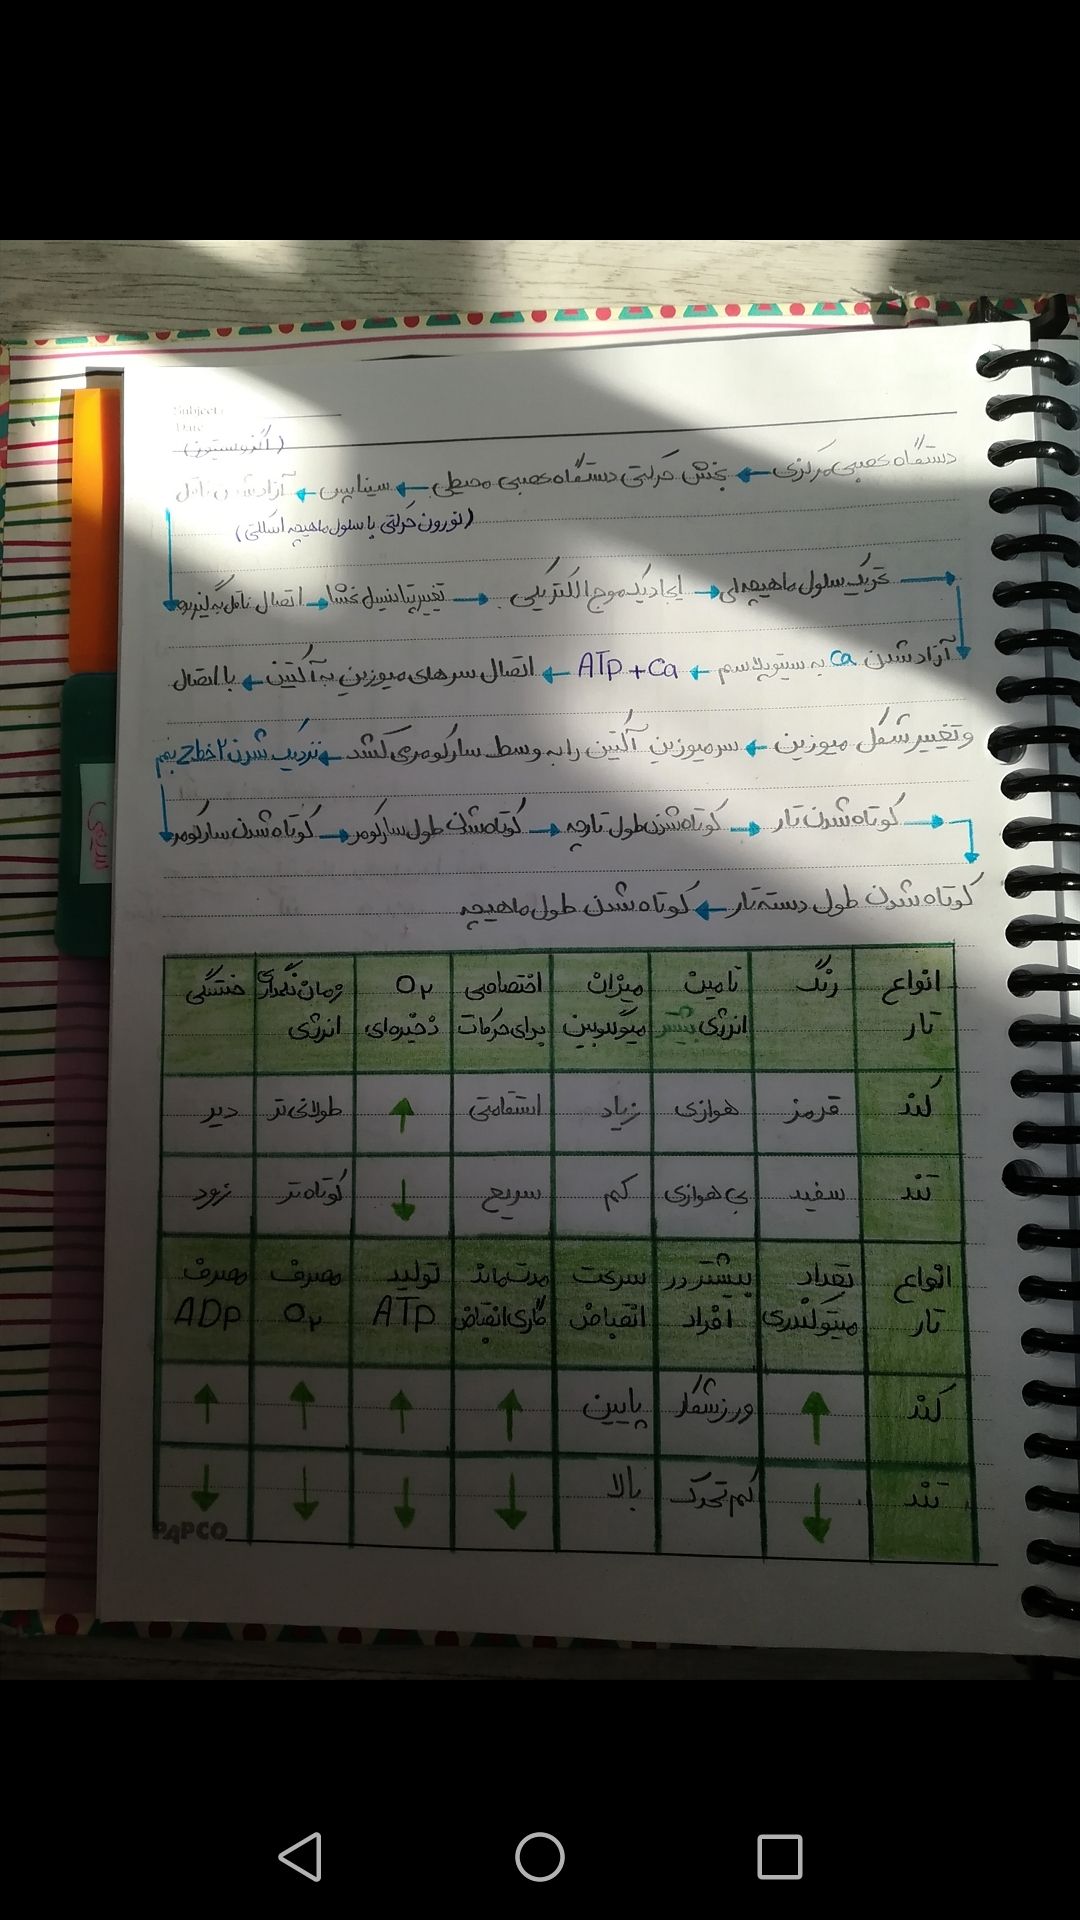 Subject:
Date
(اگزوسیتوز)
دستگاه عصبی مرکزی ← بخش حرکتی دستگاه عصبی محیطی ← سیناپس ← آزاد شدن ناقل
(نورون حرکتی با سلول ماهیچه اسکلتی)
اتصال ناقل به گیرنده → تغییر پتانسیل غشا → ایجاد یک موج الکتریکی → تحریک سلول ماهیچه ای →
آزاد شدن Ca به سیتوپلاسم ← ATP + Ca ← اتصال سرهای میوزین به آکتین ← با اتصال
و تغییر شکل میوزین ← سر میوزین آکتین را به وسط سارکومر می کشد ← نزدیک شدن ۲ خط Z بهم
کوتاه شدن سارکومر → کوتاه شدن طول سارکومر → کوتاه شدن طول تارچه → کوتاه شدن تار →
کوتاه شدن طول دسته تار ← کوتاه شدن طول ماهیچه
انواع تار رنگ تامین انرژی بیشتر میزان میوگلوبین اختصاصی برای حرکات O₂ ذخیره ای زمان نگهداری انرژی خستگی
کند قرمز هوازی زیاد استقامتی ↑ طولانی تر دیر
تند سفید بی هوازی کم سریع ↓ کوتاه تر زود
انواع تار تعداد میتوکندری بیشتر در افراد سرعت انقباض مدت ماندگاری انقباض تولید ATP مصرف O₂ مصرف ADP
کند ↑ ورزشکار پایین ↑ ↑ ↑ ↑
تند ↓ کم تحرک بالا ↓ ↓ ↓ ↓
PAPCO
شیمی